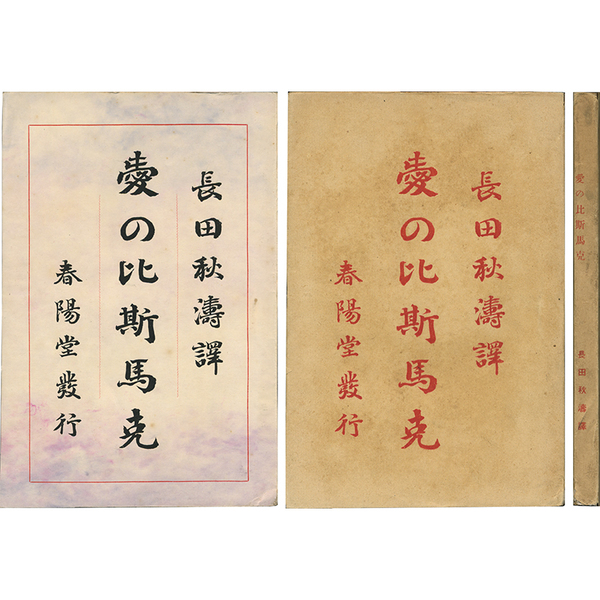 長田秋濤譯
愛の比斯馬克
春陽堂發行
長田秋濤譯
愛の比斯馬克
春陽堂發行
愛の比斯馬克
長田秋濤譯